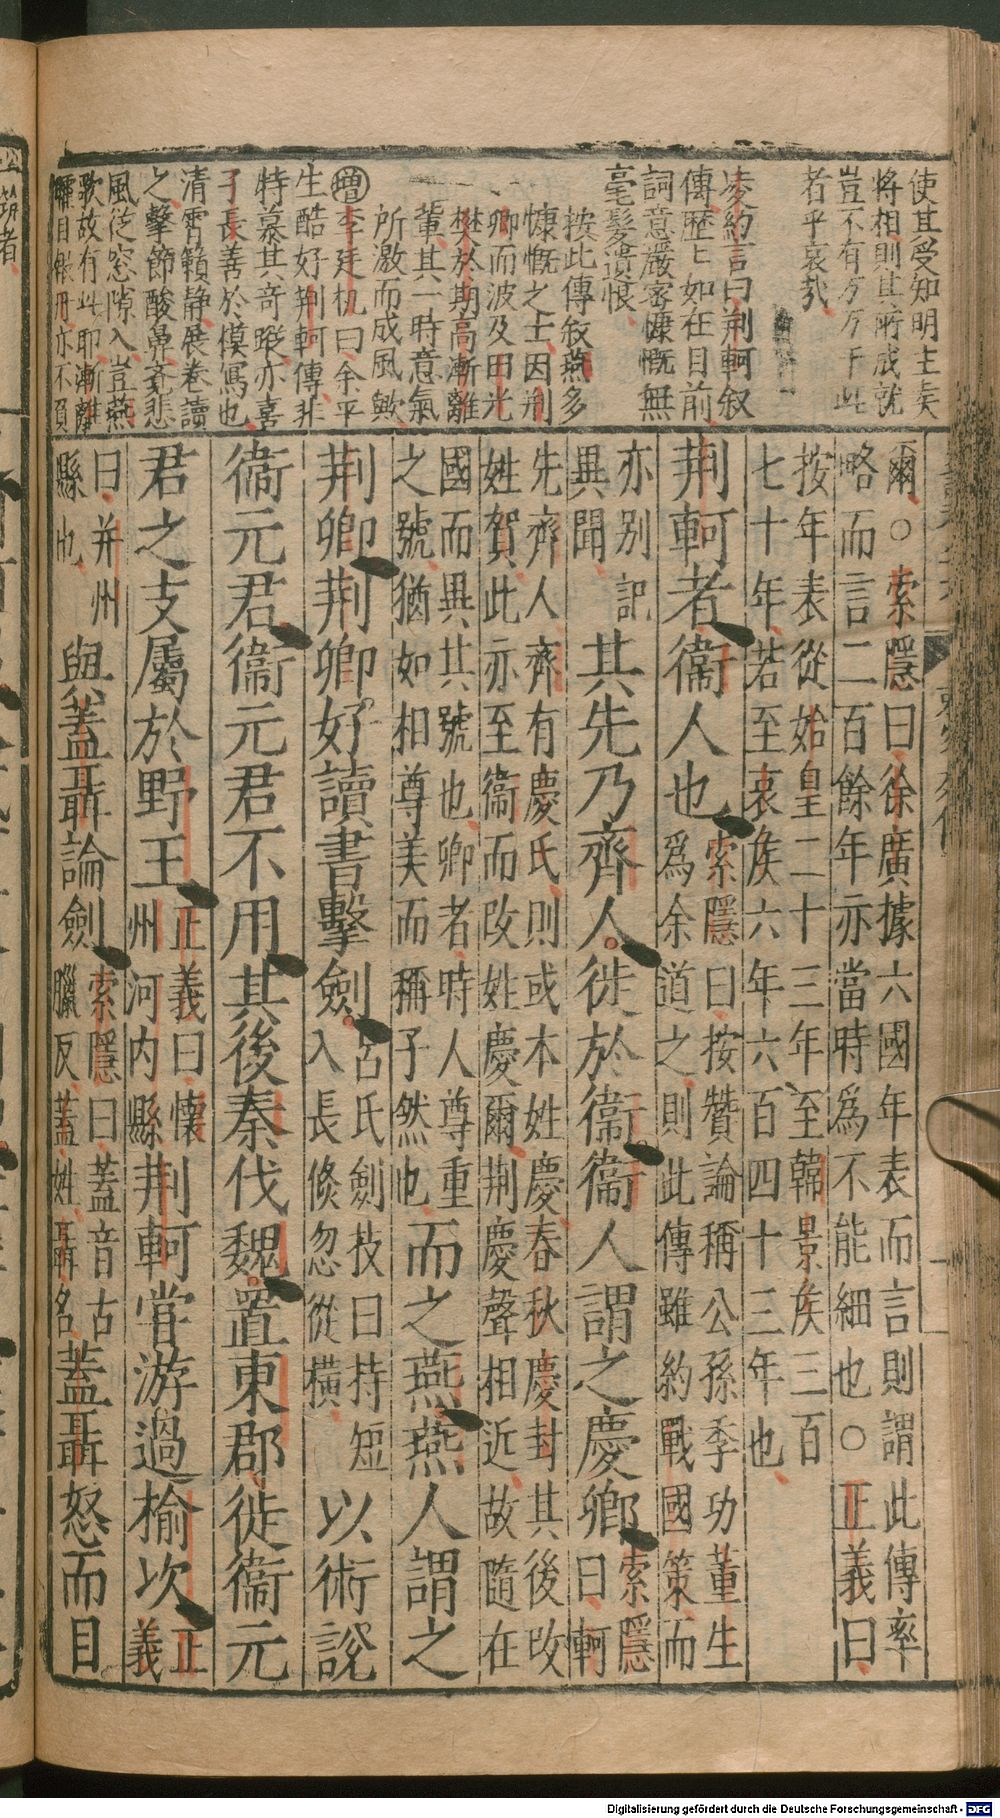 使其受知明主奏
將相則其所成就
豈不有
者乎哀哉
凌約言曰荆軻叙
傳歷歷如在目前
詞意嚴密慷慨無
毫髮遺恨
按此傳叙燕多
慷慨之士因荆
卿而波及田光
樊於期高漸離
輩其一時意氣
所激而成風歟
增李廷机曰余平
生酷好荆軻傳非
特慕其奇蹤亦喜
子長善於摸寫也
清宵籟静展卷讀
之擊節酸鼻吝悲
風從窓隙入豈燕
歌故有此耶漸離
矐目
亦不負
爾○索隱曰徐廣據六國年表而言則謂此傳率
略而言二百餘年亦當時爲不能細也○正義曰
按年表從始皇二十三年至韓景矦三百
七十年若至哀矦六年六百四十三年也
荆軻者衞人也
索隱曰按贊論稱公孫季功董生
爲余道之則此傳雖約戰國策而
亦别記
異聞
其先乃齊人徙於衞衞人謂之慶卿
索隱
曰軻
先齊人齊有慶氏則或本姓慶春秋慶封其後改
姓賀此亦至衞而改姓慶爾荆慶聲相近故隨在
國而異其號也卿者時人尊重
之號猶如相尊美而稱子然也
而之燕燕人謂之
荆卿荆卿好讀書擊劍
呂氏劍技曰持短
入長倐忽從横
以術說
衞元君衞元君不用其後秦伐魏置東郡徙衞元
君之支屬於野王
正義曰懷
州河内縣
荆軻甞游過榆次
正
義
曰并州
縣也
與蓋聶論劍
索隱曰蓋音古
臘反蓋姓聶名
蓋聶怒而目
Digitalisierung gefördert durch die Deutsche Forschungsgemeinschaft - DFG